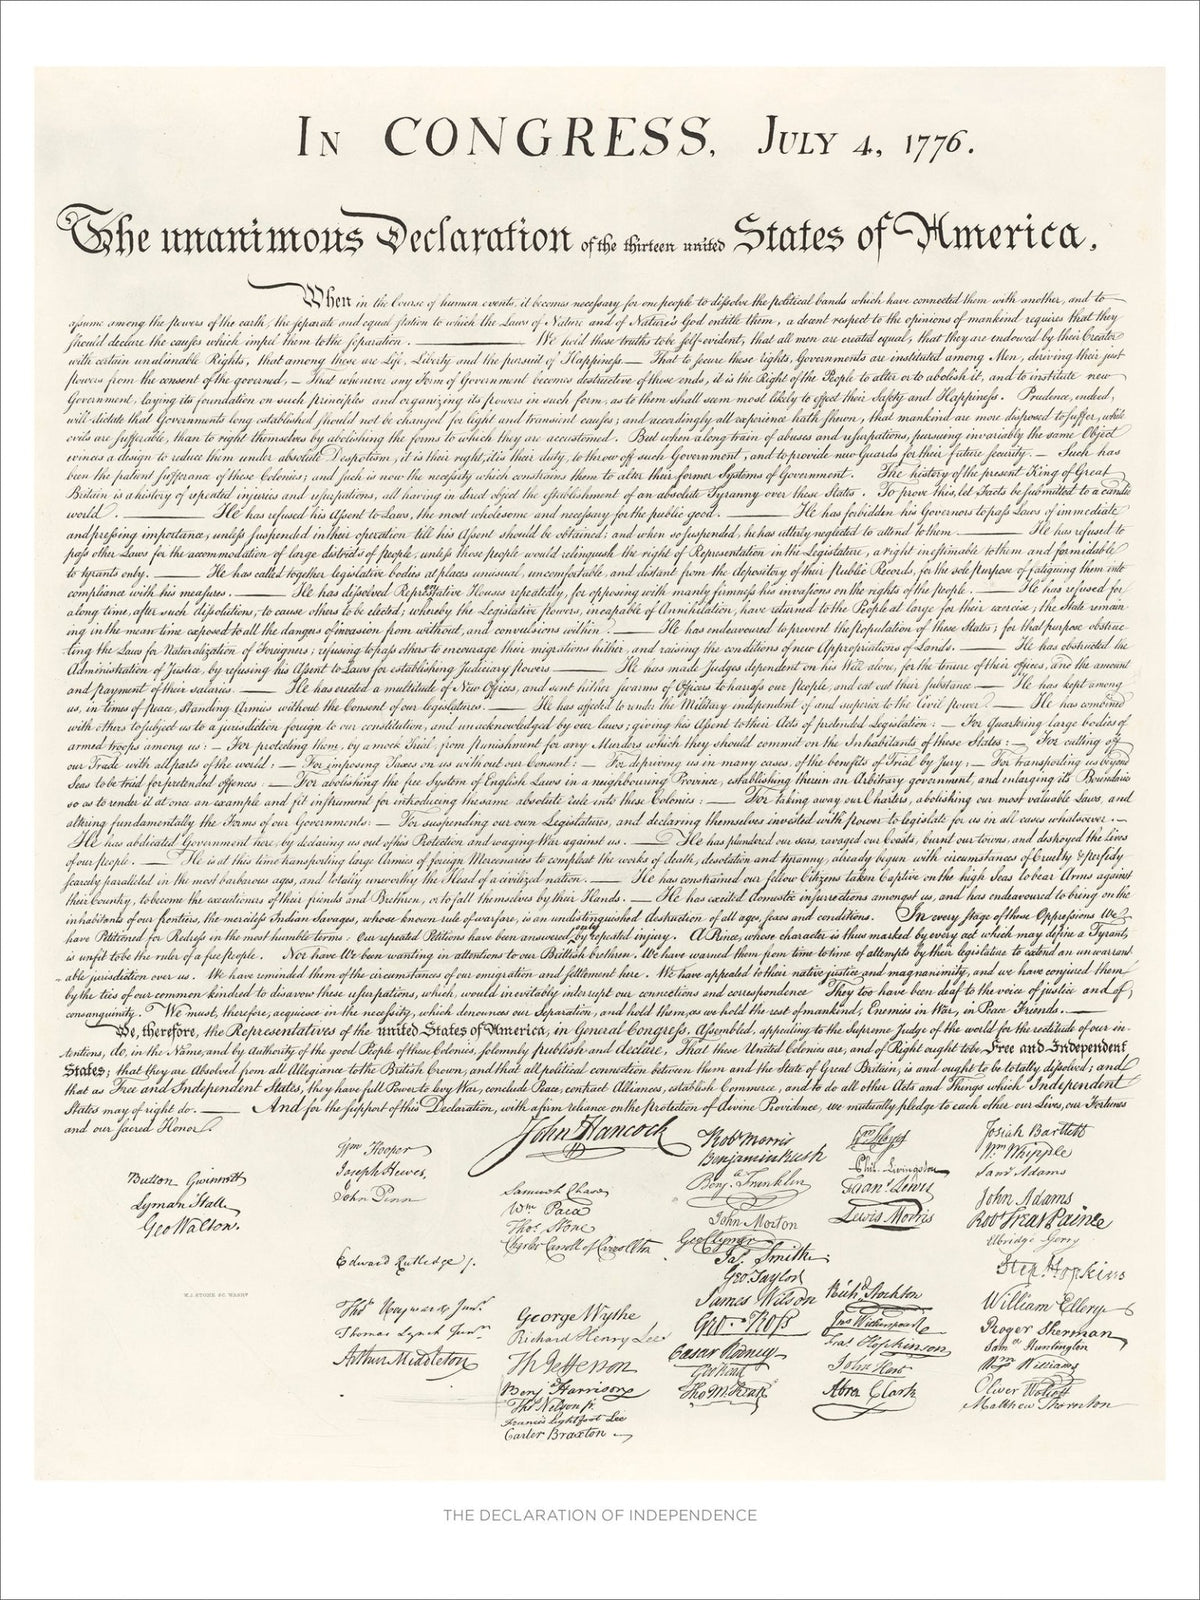 In CONGRESS, July 4, 1776.
The unanimous Declaration of the thirteen united States of America,
When in the Course of human events, it becomes necessary for one people to dissolve the political bands which have connected them with another, and to
assume among the powers of the earth, the separate and equal station to which the Laws of Nature and of Nature's God entitle them, a decent respect to the opinions of mankind requires that they
should declare the causes which impel them to the separation. — We hold these truths to be self-evident, that all men are created equal, that they are endowed by their Creator
with certain unalienable Rights, that among these are Life, Liberty and the pursuit of Happiness. — That to secure these rights, Governments are instituted among Men, deriving their just
powers from the consent of the governed, — That whenever any Form of Government becomes destructive of these ends, it is the Right of the People to alter or to abolish it, and to institute new
Government, laying its foundation on such principles and organizing its powers in such form, as to them shall seem most likely to effect their Safety and Happiness. Prudence, indeed,
will dictate that Governments long established should not be changed for light and transient causes; and accordingly all experience hath shewn, that mankind are more disposed to suffer, while
evils are sufferable, than to right themselves by abolishing the forms to which they are accustomed. But when a long train of abuses and usurpations, pursuing invariably the same Object
evinces a design to reduce them under absolute Despotism, it is their right, it is their duty, to throw off such Government, and to provide new Guards for their future security. — Such has
been the patient sufferance of these Colonies; and such is now the necessity which constrains them to alter their former Systems of Government. The history of the present King of Great
Britain is a history of repeated injuries and usurpations, all having in direct object the establishment of an absolute Tyranny over these States. To prove this, let Facts be submitted to a candid
world. — He has refused his Assent to Laws, the most wholesome and necessary for the public good. — He has forbidden his Governors to pass Laws of immediate
and pressing importance, unless suspended in their operation till his Assent should be obtained; and when so suspended, he has utterly neglected to attend to them. — He has refused to
pass other Laws for the accommodation of large districts of people, unless those people would relinquish the right of Representation in the Legislature, a right inestimable to them and formidable
to tyrants only. — He has called together legislative bodies at places unusual, uncomfortable, and distant from the depository of their Public Records, for the sole purpose of fatiguing them into
compliance with his measures. — He has dissolved Representative Houses repeatedly, for opposing with manly firmness his invasions on the rights of the people. — He has refused for
a long time, after such dissolutions, to cause others to be elected; whereby the Legislative powers, incapable of Annihilation, have returned to the People at large for their exercise; the State remain-
ing in the mean time exposed to all the dangers of invasion from without, and convulsions within. — He has endeavoured to prevent the population of these States; for that purpose obstruc-
ting the Laws for Naturalization of Foreigners; refusing to pass others to encourage their migrations hither, and raising the conditions of new Appropriations of Lands. — He has obstructed the
Administration of Justice, by refusing his Assent to Laws for establishing Judiciary powers. — He has made Judges dependent on his Will alone, for the tenure of their offices, and the amount
and payment of their salaries. — He has erected a multitude of New Offices, and sent hither swarms of Officers to harass our people, and eat out their substance. — He has kept among
us, in times of peace, Standing Armies without the Consent of our legislatures. — He has affected to render the Military independent of and superior to the Civil power. — He has combined
with others to subject us to a jurisdiction foreign to our constitution, and unacknowledged by our laws; giving his Assent to their Acts of pretended Legislation: — For Quartering large bodies of
armed troops among us: — For protecting them, by a mock Trial, from punishment for any Murders which they should commit on the Inhabitants of these States: — For cutting off
our Trade with all parts of the world: — For imposing Taxes on us without our Consent: — For depriving us in many cases, of the benefits of Trial by Jury: — For transporting us beyond
Seas to be tried for pretended offences — For abolishing the free System of English Laws in a neighbouring Province, establishing therein an Arbitrary government, and enlarging its Boundaries
so as to render it at once an example and fit instrument for introducing the same absolute rule into these Colonies: — For taking away our Charters, abolishing our most valuable Laws, and
altering fundamentally the Forms of our Governments: — For suspending our own Legislatures, and declaring themselves invested with power to legislate for us in all cases whatsoever. —
He has abdicated Government here, by declaring us out of his Protection and waging War against us. — He has plundered our seas, ravaged our Coasts, burnt our towns, and destroyed the lives
of our people. — He is at this time transporting large Armies of foreign Mercenaries to compleat the works of death, desolation and tyranny, already begun with circumstances of Cruelty & perfidy
scarcely paralleled in the most barbarous ages, and totally unworthy the Head of a civilized nation. — He has constrained our fellow Citizens taken Captive on the high Seas to bear Arms against
their Country, to become the executioners of their friends and Brethren, or to fall themselves by their Hands. — He has excited domestic insurrections amongst us, and has endeavoured to bring on the
inhabitants of our frontiers, the merciless Indian Savages, whose known rule of warfare, is an undistinguished destruction of all ages, sexes and conditions. In every stage of these Oppressions We
have Petitioned for Redress in the most humble terms: Our repeated Petitions have been answered only by repeated injury. A Prince, whose character is thus marked by every act which may define a Tyrant,
is unfit to be the ruler of a free people. Nor have We been wanting in attentions to our Brittish brethren. We have warned them from time to time of attempts by their legislature to extend an unwarrant-
able jurisdiction over us. We have reminded them of the circumstances of our emigration and settlement here. We have appealed to their native justice and magnanimity, and we have conjured them
by the ties of our common kindred to disavow these usurpations, which, would inevitably interrupt our connections and correspondence They too have been deaf to the voice of justice and of
consanguinity. We must, therefore, acquiesce in the necessity, which denounces our Separation, and hold them, as we hold the rest of mankind, Enemies in War, in Peace Friends. —
We, therefore, the Representatives of the united States of America, in General Congress, Assembled, appealing to the Supreme Judge of the world for the rectitude of our in-
tentions, do, in the Name, and by Authority of the good People of these Colonies, solemnly publish and declare, That these United Colonies are, and of Right ought to be Free and Independent
States; that they are Absolved from all Allegiance to the British Crown, and that all political connection between them and the State of Great Britain, is and ought to be totally dissolved; and
that as Free and Independent States, they have full Power to levy War, conclude Peace, contract Alliances, establish Commerce, and to do all other Acts and Things which Independent
States may of right do. — And for the support of this Declaration, with a firm reliance on the protection of divine Providence, we mutually pledge to each other our Lives, our Fortunes
and our sacred Honor.
Button Gwinnett
Lyman Hall
Geo Walton.
W.J. STONE SC. WASHN
Wm Hooper
Joseph Hewes,
John Penn
Edward Rutledge /.
Thos Heyward Junr.
Thomas Lynch Junr.
Arthur Middleton
John Hancock
Samuel Chase
Wm. Paca
Thos. Stone
Charles Carroll of Carrollton
George Wythe
Richard Henry Lee
Th Jefferson
Benja Harrison
Thos Nelson jr.
Francis Lightfoot Lee
Carter Braxton
Robt Morris
Benjamin Rush
Benja. Franklin
John Morton
Geo Clymer
Jas. Smith.
Geo. Taylor
James Wilson
Geo. Ross
Caesar Rodney
Geo Read
Tho M:Kean
Wm Floyd
Phil. Livingston
Frans. Lewis
Lewis Morris
Richd. Stockton
Jno Witherspoon
Fras. Hopkinson
John Hart
Abra Clark
Josiah Bartlett
Wm: Whipple
Saml Adams
John Adams
Robt Treat Paine
Elbridge Gerry
Step. Hopkins
William Ellery
Roger Sherman
Saml Huntington
Wm Williams
Oliver Wolcott
Matthew Thornton
THE DECLARATION OF INDEPENDENCE